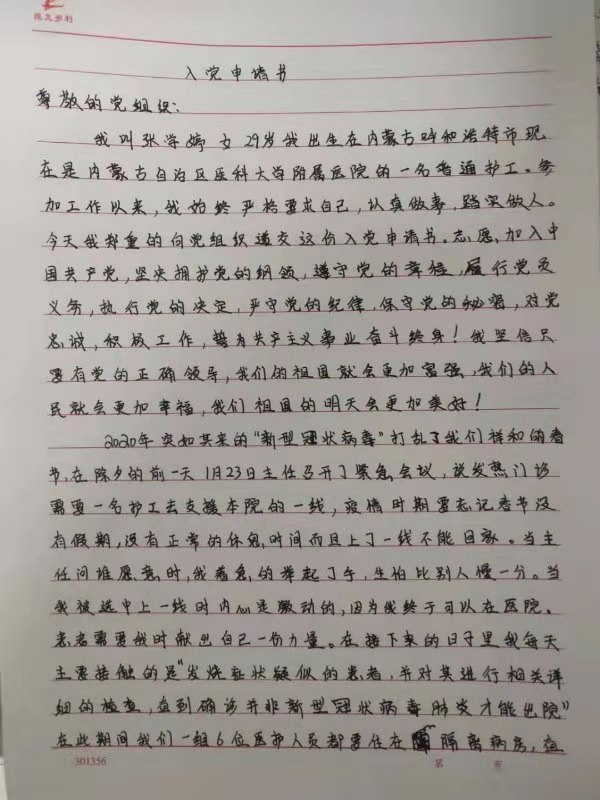 入党申请书
尊敬的党组织：
我叫张学婷 女 29岁 我出生在内蒙古呼和浩特市现
在是内蒙古自治区医科大学附属医院的一名普通护工。参
加工作以来，我始终严格要求自己，认真做事，踏实做人。
今天我郑重的向党组织递交这份入党申请书。志愿加入中
国共产党，坚决拥护党的纲领，遵守党的章程，履行党员
义务，执行党的决定，严守党的纪律，保守党的秘密，对党
忠诚，积极工作，誓为共产主义事业奋斗终身！我坚信只
要有党的正确领导，我们的祖国就会更加富强，我们的人
民就会更加幸福，我们祖国的明天会更加美好！
2020年突如其来的“新型冠状病毒”打乱了我们祥和的春
节，在除夕的前一天1月23日主任召开了紧急会议，说发热门诊
需要一名护工去支援本院的一线，疫情时期要忘记春节没
有假期，没有正常的休息时间而且上了一线不能回家。当主
任问谁愿意时，我着急的举起了手，生怕比别人慢一分。当
我被选中上一线时内心是激动的，因为我终于可以在医院、
患者需要我时献出自己一份力量。在接下来的日子里我每天
主要接触的是“发烧症状疑似的患者，并对其进行相关详
细的检查，直到确诊并非新型冠状病毒肺炎才能出院”
在此期间我们一组6位医护人员都要住在隔离病房，在
301356
第 页